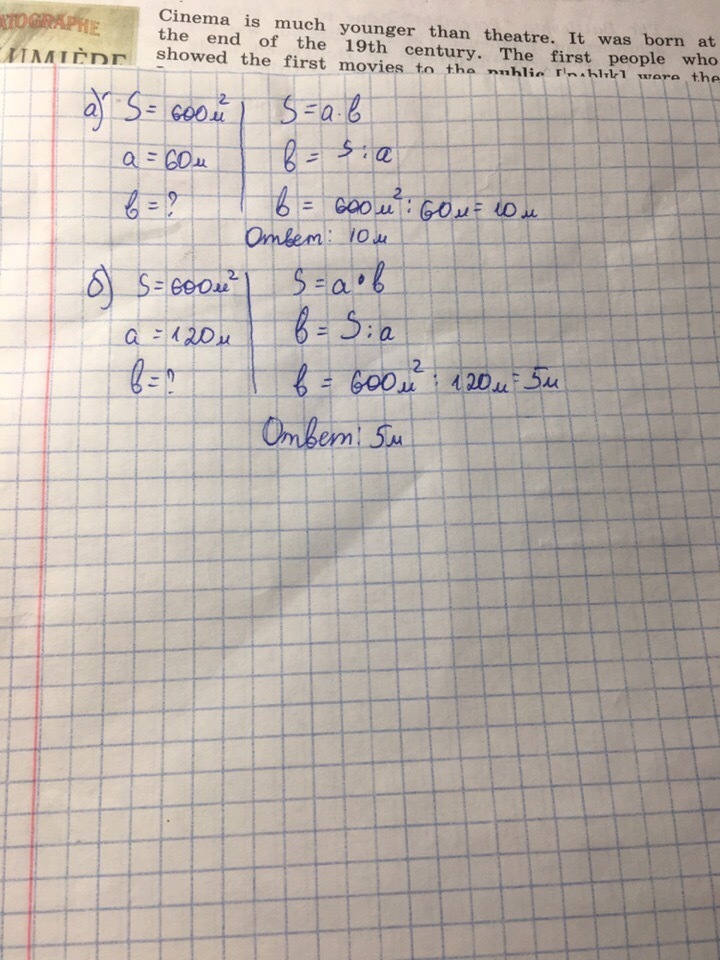 ATOGRAPHE
LUMIÈRE
Cinema is much younger than theatre. It was born at
the end of the 19th century. The first people who
showed the first movies to the public [ˈpʌblɪk] were the
а) S = 600м²
a = 60м
b = ?
S = a · b
b = S : a
b = 600м² : 60м = 10м
Ответ: 10м
б) S = 600м²
a = 120м
b = ?
S = a · b
b = S : a
b = 600м² : 120м = 5м
Ответ: 5м